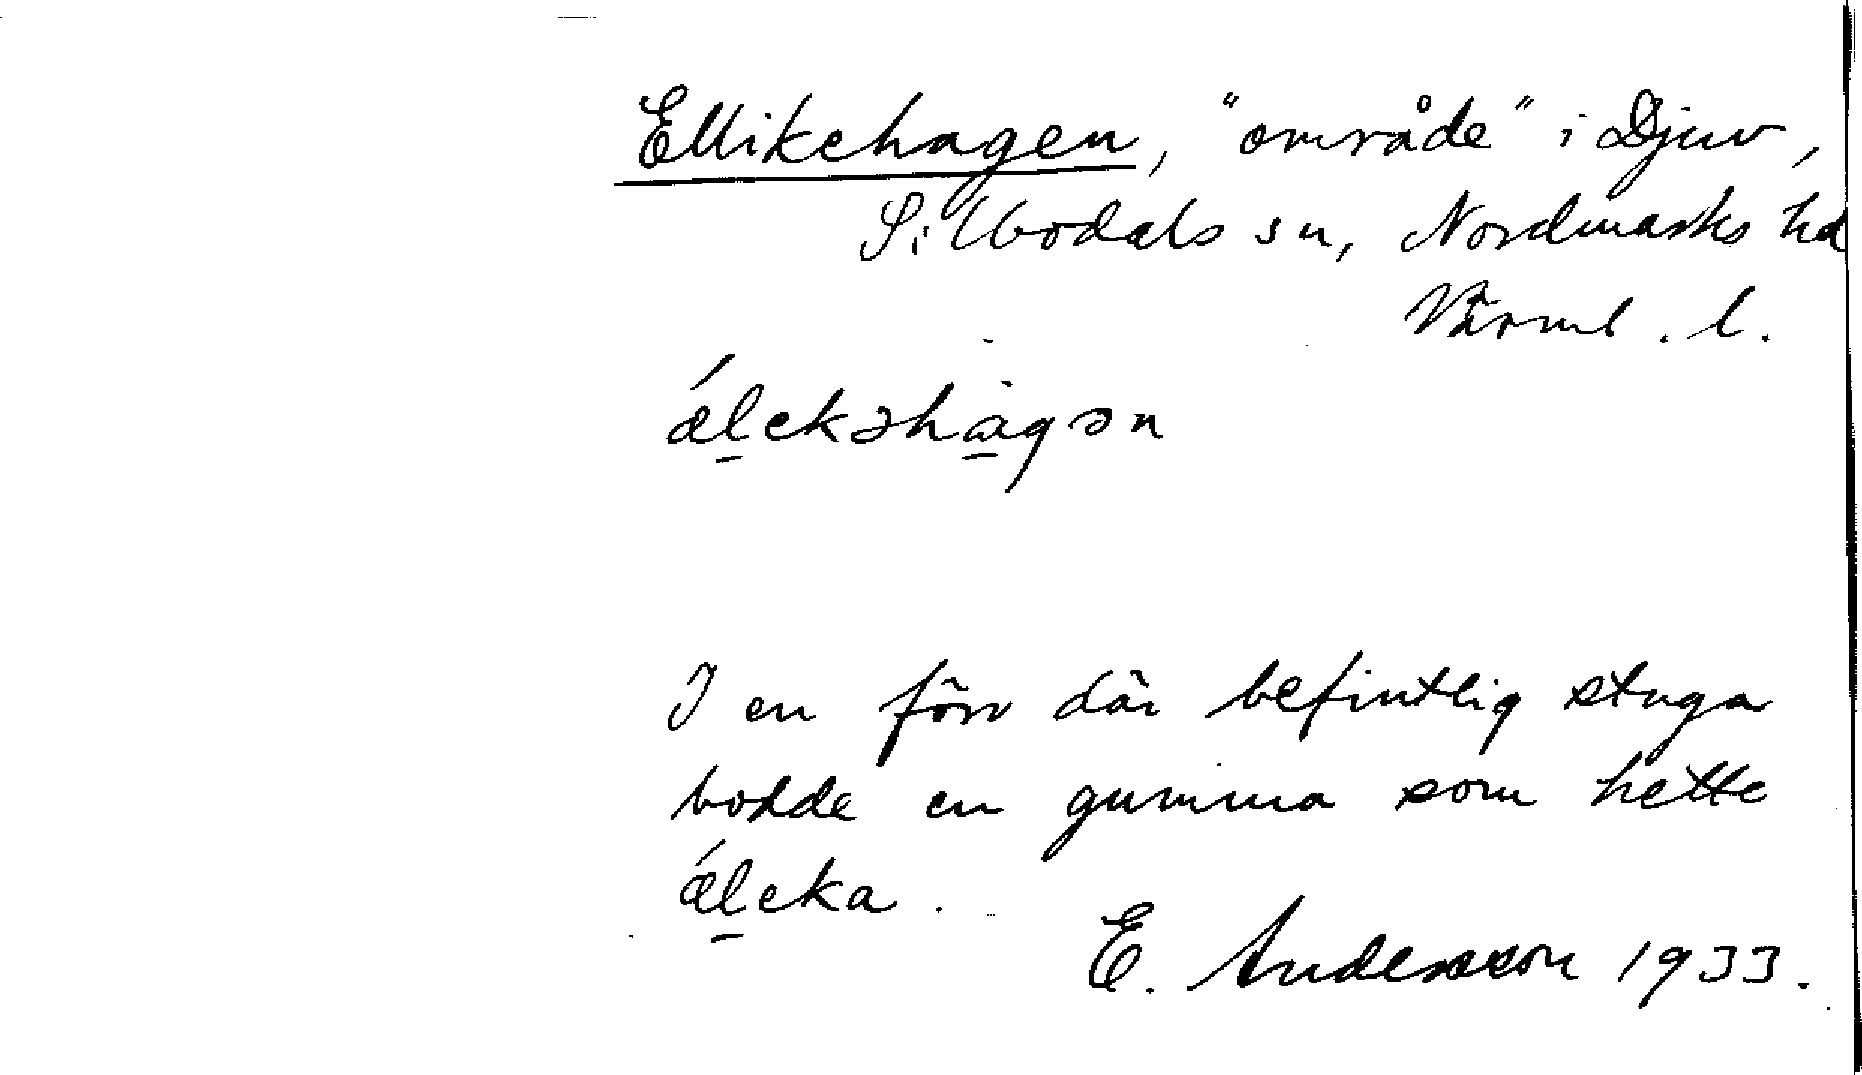 Ellikehagen, "område" i Djuv,
Silbodals sn, Nordmarks hd
Värml. l.
ǽl̠ekəhàgən
I en förr där befintlig stuga
bodde en gumma som hette
ǽl̠eka.
E. Andersson 1933.